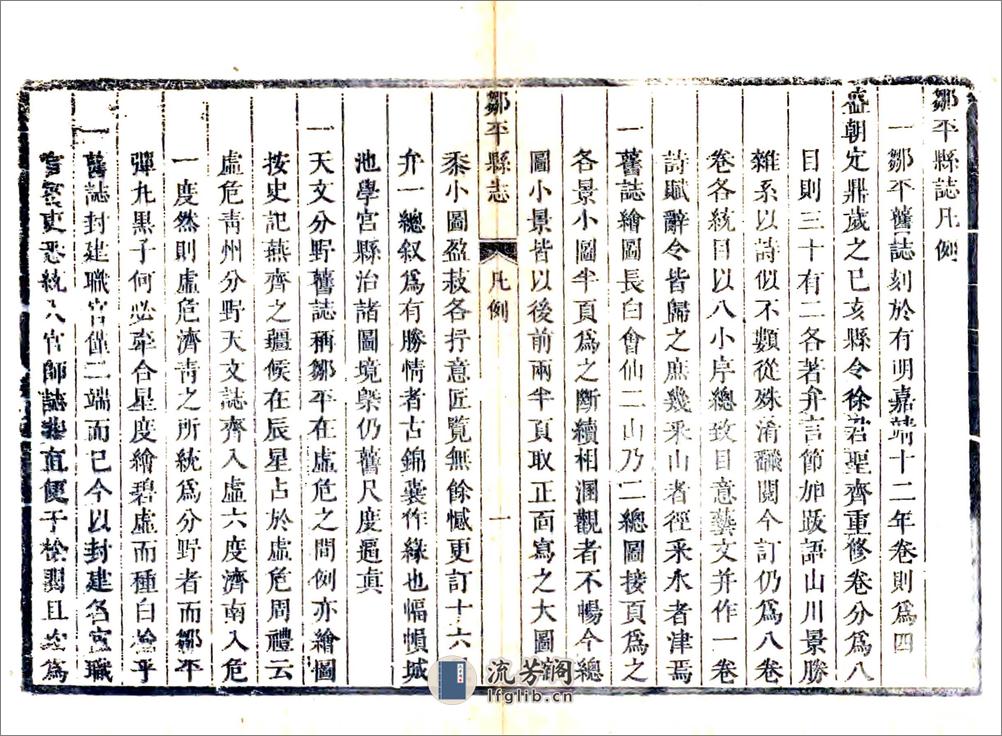 鄒平縣誌凡例
一鄒平舊誌刻於有明嘉靖十二年卷則爲四
盛朝定鼎歲之己亥縣令徐君聖齊重修卷分爲八
目則三十有二各著弁言節加跋語山川景勝
雜系以詩似不類從殊淆翻閱今訂仍爲八卷
卷各統目以八小序總致目意藝文并作一卷
詩賦辭令皆歸之庶幾采山者徑采水者津焉
一舊誌繪圖長白會仙二山乃二總圖接頁爲之
各景小圖半頁爲之斷續相溷觀者不暢今總
圖小景皆以後前兩半頁取正面寫之大圖
鄒平縣志 凡例 一
黍小圖盈菽各抒意匠覽無餘憾更訂十六
弁一總叙爲有勝情者古錦囊作緣也幅幀城
池學宮縣治諸圖境槩仍舊尺度逼眞
一天文分野舊誌稱鄒平在虛危之間例亦繪圖
按史記燕齊之疆候在辰星占於虛危周禮云
虛危青州分野天文誌齊入虛六度濟南入危
一度然則虛危濟青之所統爲分野者而鄒平
彈丸黑子何必牽合星度繪碧虛而種白榆乎
一舊誌封建職官僅二端而已今以封建名宦職
官統入官師誌直便于檢閱且爲
流芳阁
lfglib.cn